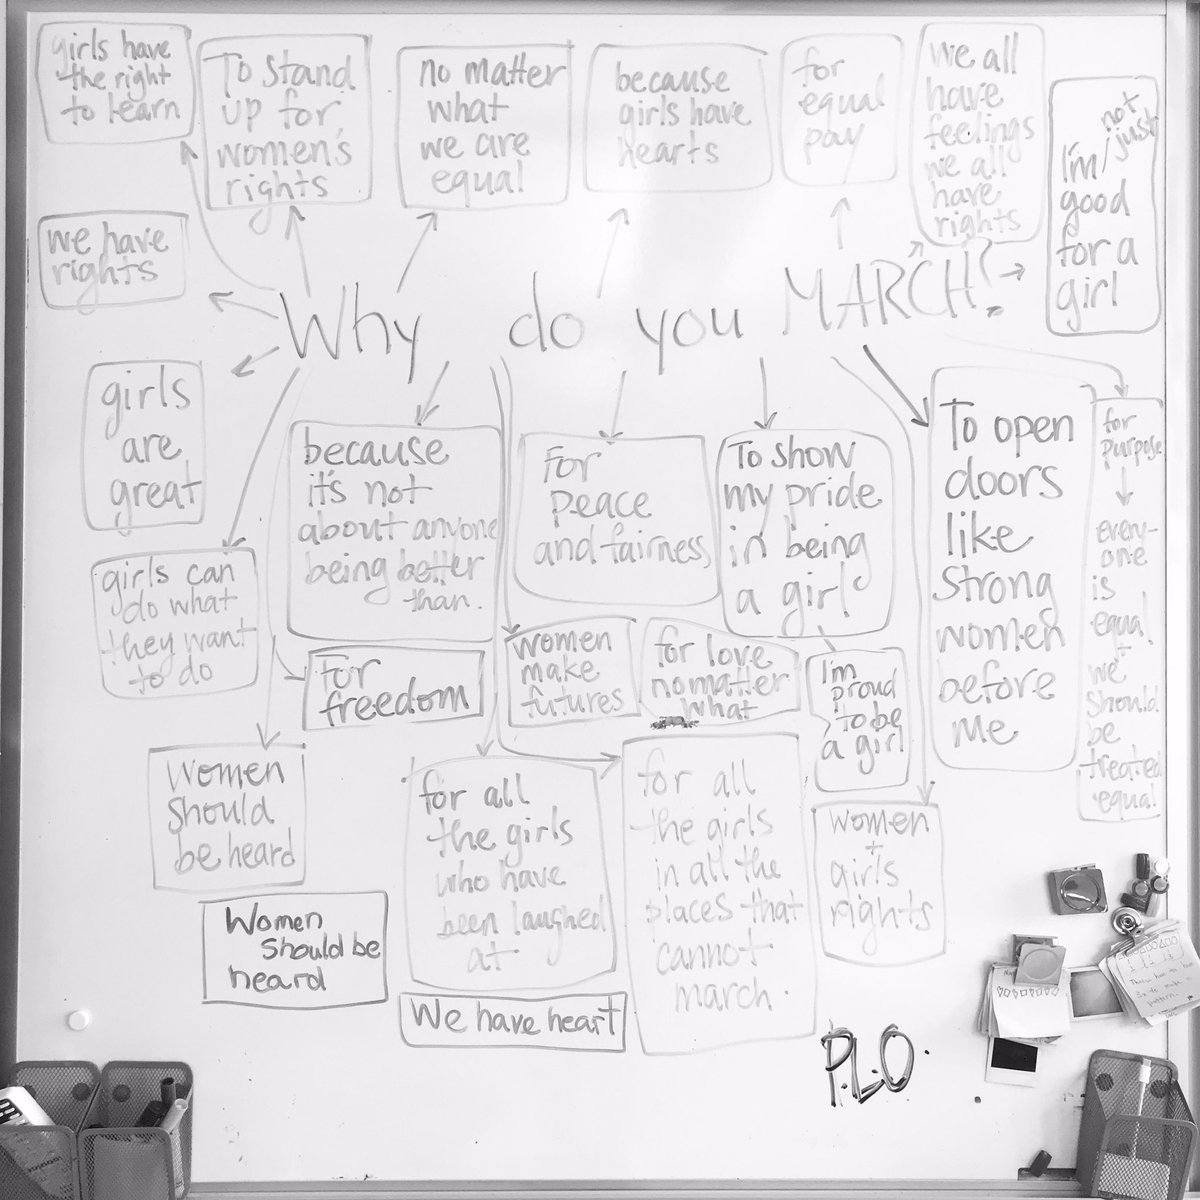 girls have
the right
to learn
To stand
up for
women's
rights
no matter
what
we are
equal
because
girls have
hearts
for
equal
pay
we all
have
feelings
we all
have
rights
not
just
I'm/
good
for a
girl
we have
rights
Why do you MARCH?
girls
are
great
because
it's not
about anyone
being better
than.
For
peace
and fairness
To show
my pride
in being
a girl
To open
doors
like
strong
women
before
me
for
purpose
every-
one
is
equal
+
we
should
be
treated
equal
girls can
do what
they want
to do
for
freedom
women
make
futures
for love
no matter
what
I'm
proud
to be
a girl
women
should
be heard
for all
the girls
who have
been laughed
at
for all
the girls
in all the
places that
cannot
march.
women
+
girls
rights
Women
should be
heard
We have heart
P.L.O.